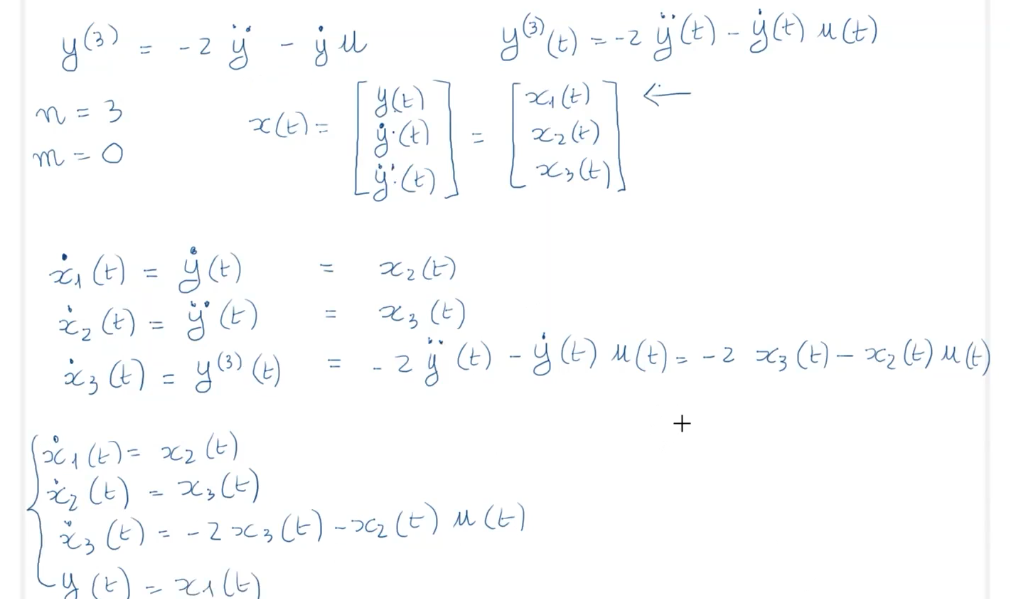 y⁽³⁾ = -2 ÿ - ẏ u    y⁽³⁾(t) = -2 ÿ(t) - ẏ(t) u(t)
n = 3
m = 0
x(t) = [y(t) ẏ(t) ÿ(t)] = [x₁(t) x₂(t) x₃(t)] ←
ẋ₁(t) = ẏ(t) = x₂(t)
ẋ₂(t) = ÿ(t) = x₃(t)
ẋ₃(t) = y⁽³⁾(t) = -2 ÿ(t) - ẏ(t) u(t) = -2 x₃(t) - x₂(t) u(t)
ẋ₁(t) = x₂(t)
ẋ₂(t) = x₃(t)
ẋ₃(t) = -2 x₃(t) - x₂(t) u(t)
y(t) = x₁(t)